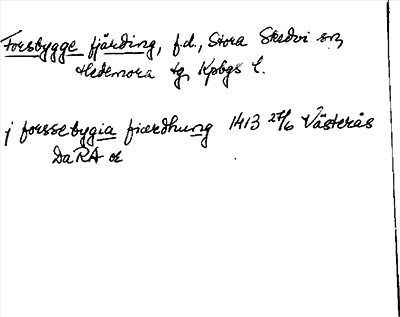 Forsbygge fjärding, f.d., Stora Skedvi sn,
Hedemora tg, Kpbgs l.
j forssebygia fiærdhung 1413 27/6 Västerås
DaRA or